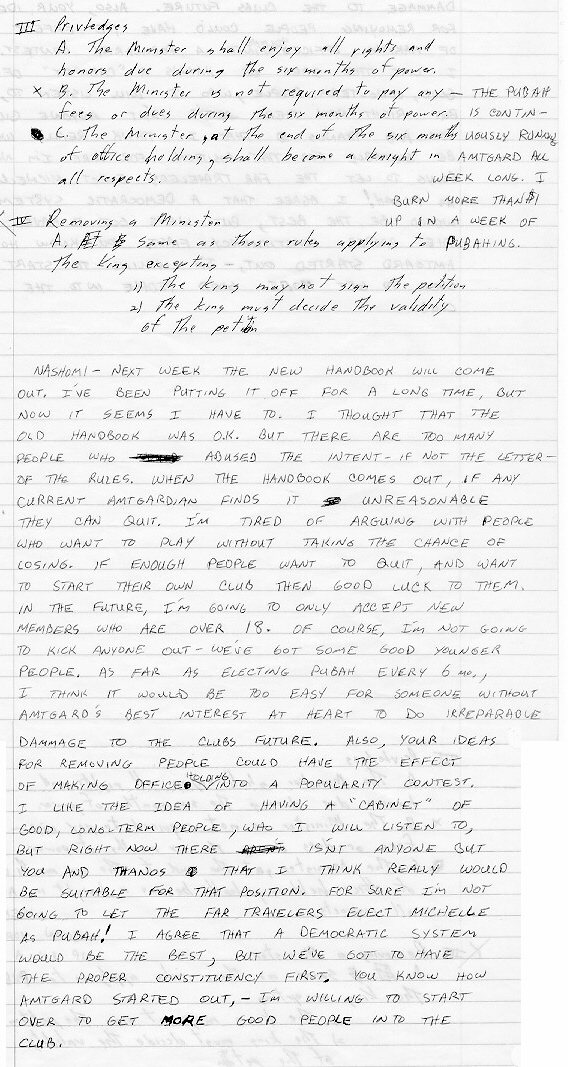 III Privledges
A. The Minister shall enjoy all rights and
honors due during the six months of power.
x B. The Minister is not required to pay any — THE PUBAH
fees or dues during the six months of power. IS CONTIN-
C. The Minister, at the end of the six months UOUSLY RUNING
of office holding, shall become a knight in AMTGARD ALL
all respects. WEEK LONG. I
BURN MORE THAN $1
IV Removing a Minister UP IN A WEEK OF
A. Same as those rules applying to PUBAHING.
the King excepting -
1) The king may not sign the petition
2) The king must decide the validity
of the petition
NASHOMI - NEXT WEEK THE NEW HANDBOOK WILL COME
OUT. I'VE BEEN PUTTING IT OFF FOR A LONG TIME, BUT
NOW IT SEEMS I HAVE TO. I THOUGHT THAT THE
OLD HANDBOOK WAS O.K. BUT THERE ARE TOO MANY
PEOPLE WHO ABUSED THE INTENT - IF NOT THE LETTER -
OF THE RULES. WHEN THE HANDBOOK COMES OUT, IF ANY
CURRENT AMTGARDIAN FINDS IT UNREASONABLE
THEY CAN QUIT. I'M TIRED OF ARGUING WITH PEOPLE
WHO WANT TO PLAY WITHOUT TAKING THE CHANCE OF
LOSING. IF ENOUGH PEOPLE WANT TO QUIT, AND WANT
TO START THEIR OWN CLUB THEN GOOD LUCK TO THEM.
IN THE FUTURE, I'M GOING TO ONLY ACCEPT NEW
MEMBERS WHO ARE OVER 18. OF COURSE, I'M NOT GOING
TO KICK ANYONE OUT - WE'VE GOT SOME GOOD YOUNGER
PEOPLE. AS FAR AS ELECTING PUBAH EVERY 6 MO.,
I THINK IT WOULD BE TOO EASY FOR SOMEONE WITHOUT
AMTGARD'S BEST INTEREST AT HEART TO DO IRREPARABLE
DAMAGE TO THE CLUBS FUTURE. ALSO, YOUR IDEAS
FOR REMOVING PEOPLE COULD HAVE THE EFFECT
OF MAKING OFFICE HOLDING INTO A POPULARITY CONTEST.
I LIKE THE IDEA OF HAVING A "CABINET" OF
GOOD, LONG-TERM PEOPLE, WHO I WILL LISTEN TO,
BUT RIGHT NOW THERE AREN'T ISN'T ANYONE BUT
YOU AND THANOS THAT I THINK REALLY WOULD
BE SUITABLE FOR THAT POSITION. FOR SURE I'M NOT
GOING TO LET THE FAR TRAVELERS ELECT MICHELLE
AS PUBAH! I AGREE THAT A DEMOCRATIC SYSTEM
WOULD BE THE BEST, BUT WE'VE GOT TO HAVE
THE PROPER CONSTITUENCY FIRST. YOU KNOW HOW
AMTGARD STARTED OUT, - I'M WILLING TO START
OVER TO GET MORE GOOD PEOPLE INTO THE
CLUB.